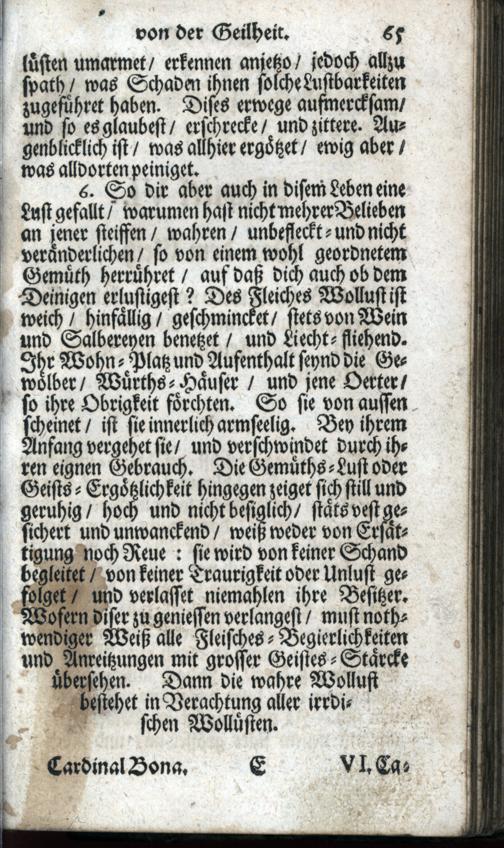 von der Geilheit. 65
lüsten umarmet / erkennen anjetzo / jedoch allzu
spath / was Schaden ihnen solche Lustbarkeiten
zugeführet haben. Dises erwege aufmercksam /
und so es glaubest / erschrecke / und zittere. Au-
genblicklich ist / was allhier ergötzet / ewig aber /
was alldorten peiniget.
6. So dir aber auch in disem Leben eine
Lust gefallt / warumen hast nicht mehrer Belieben
an jener steiffen / wahren / unbefleckt- und nicht
veränderlichen / so von einem wohl geordnetem
Gemüth herrühret / auf daß dich auch ob dem
Deinigen erlustigest ? Des Fleiches Wollust ist
weich / hinfällig / geschmincket / stets von Wein
und Salbereyen benetzet / und Liecht-fliehend.
Ihr Wohn-Platz und Aufenthalt seynd die Ge-
wölber / Würths-Häuser / und jene Oerter /
so ihre Obrigkeit förchten. So sie von aussen
scheinet / ist sie innerlich armseelig. Bey ihrem
Anfang vergehet sie / und verschwindet durch ih-
ren eignen Gebrauch. Die Gemüths-Lust oder
Geists-Ergötzlichkeit hingegen zeiget sich still und
geruhig / hoch und nicht besiglich / stäts vest ge-
sichert und unwanckend / weiß weder von Ersät-
tigung noch Reue : sie wird von keiner Schand
begleitet / von keiner Traurigkeit oder Unlust ge-
folget / und verlasset niemahlen ihre Besitzer.
Wofern diser zu geniessen verlangest / must noth-
wendiger Weiß alle Fleisches-Begierlichkeiten
und Anreitzungen mit grosser Geistes-Stärcke
übersehen. Dann die wahre Wollust
bestehet in Verachtung aller irrdi-
schen Wollüsten.
Cardinal Bona. E VI. Ca-